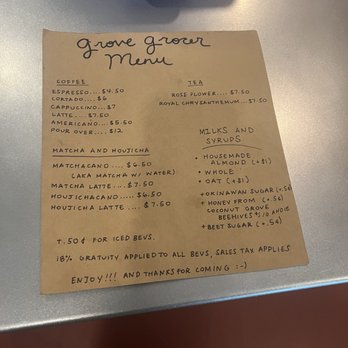 grove grocer
Menu
COFFEE
ESPRESSO.... $4.50
CORTADO.... $6
CAPPUCCINO... $7
LATTE.... $7.50
AMERICANO.... $5.50
POUR OVER.... $12
TEA
ROSE FLOWER.... $7.50
ROYAL CHRYSANTHEMUM... $7.50
MATCHA AND HOUJICHA
MATCHACANO.... $6.50
(AKA MATCHA W/ WATER)
MATCHA LATTE... $7.50
HOUJICHACANO..... $6.50
HOUJICHA LATTE.... $7.50
MILKS AND
SYRUPS
+ HOUSEMADE
ALMOND (+$1)
+ WHOLE
+ OAT (+$1)
+ OKINAWAN SUGAR (+.5¢)
+ HONEY FROM (+.5¢)
COCONUT GROVE
BEEHIVES
+ BEET SUGAR (+.5¢)
+.50¢ FOR ICED BEVS.
18% GRATUITY APPLIED TO ALL BEVS, SALES TAX APPLIES
ENJOY!!! AND THANKS FOR COMING :-)